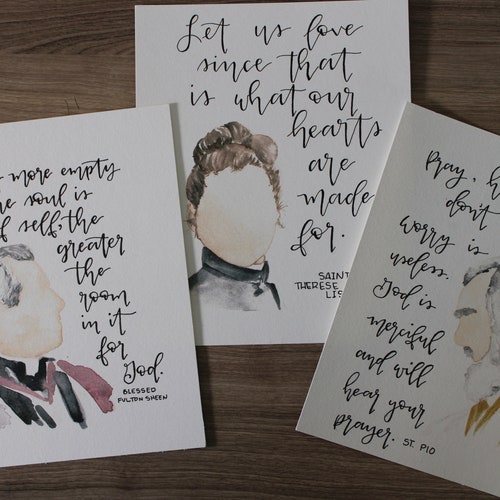 more empty
soul is
of self, the
greater
the
room
in it
for
God.
BLESSED
FULTON SHEEN
Let us love
since that
is what our
hearts
are
made
for.
SAINT
THERESE
LIS
Pray, h
don't
worry is
useless.
God is
merciful
and will
hear your
prayer. ST. PIO